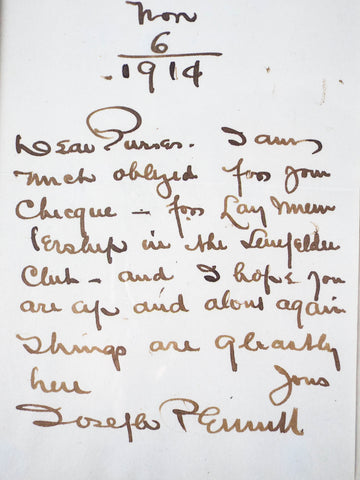 Nov
6
1914
Dear Purves. I am
much obliged for your
Checque - for Lay Mem
bership in the Senefelder
Club - and I hope you
are up and about again
Things are ghastly
here Yours
Joseph Pennell